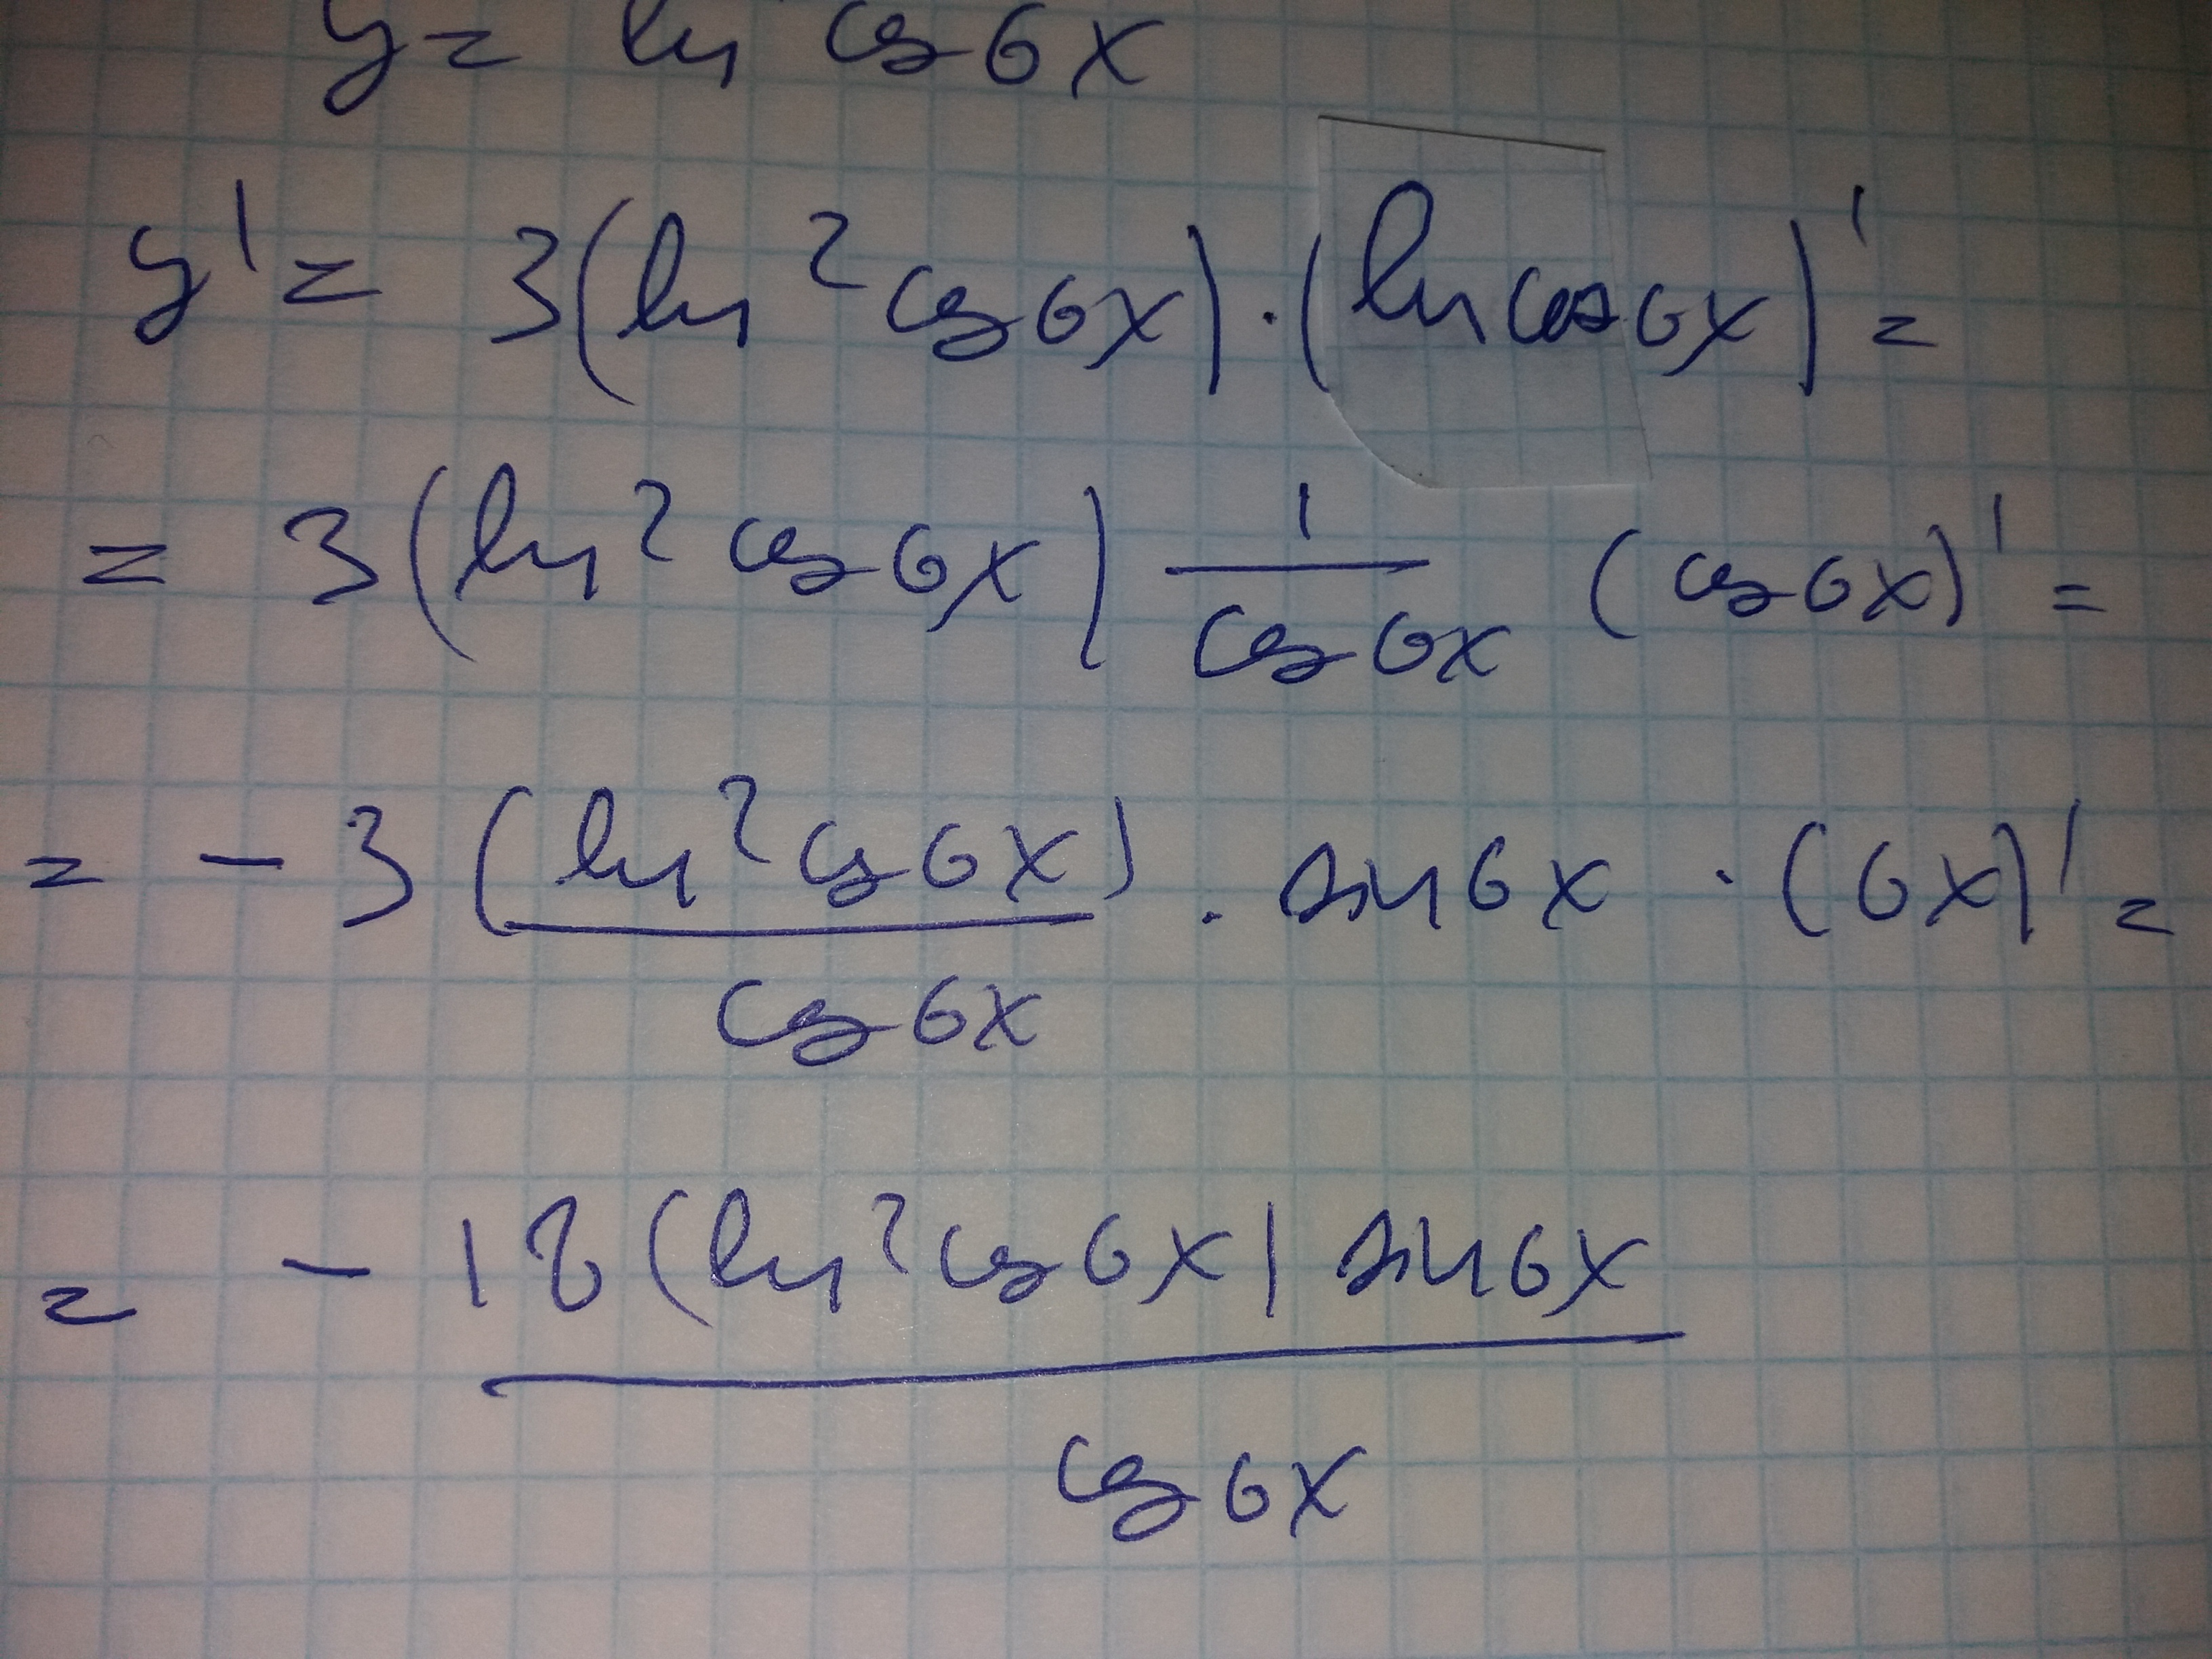 y = ln cos 6x
y' = 3(ln² cos 6x) · (ln cos 6x)' =
= 3(ln² cos 6x) 1/cos 6x (cos 6x)' =
= - 3 (ln² cos 6x)/cos 6x · sin 6x · (6x)' =
= - 18 (ln² cos 6x) sin 6x / cos 6x